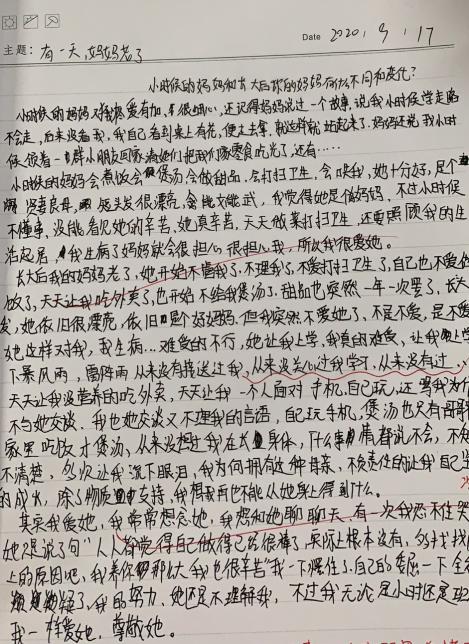 Date 2020, 9, 17
主题: 有一天,妈妈老了
小时候的妈妈和长大后你的妈妈有什么不同和变化?
小时候的妈妈对我疼爱有加,很细心,还记得妈妈说过一个故事,说我小时候学走路
不会走,后来没看我,我自己看到桌上有花,便去拿,就这样就站起来了.妈妈还说我小时
候领着一群小朋友回家,她们把我们家零食吃光了,还有.....
小时候的妈妈会煮饭会煲汤会做甜品,会打扫卫生,会哄我,她十分好,是个
贤妻良母,短头发很漂亮,能文能武,我觉得她是个好妈妈.不过小时候
不懂事,没能看见她的辛苦,她真辛苦,天天做菜打扫卫生,还要照顾我的生
活起居,我生病了妈妈就会很担心很担心我,所以我很爱她。
长大后我的妈妈老了,她开始不管我了,不理我了,不爱打扫卫生了,自己也不爱做
饭了,天天让我吃外卖了,也开始不给我煲汤了.甜品也突然一年一次罢了,长
发,她依旧很漂亮,依旧是个好妈妈.但我突然不爱她了,不是不爱,是不
她这样对我,我生病...难受的不行,她让我上学,我真的难受,让我上学
下暴风雨,雷阵雨从来没有接送过我,从来没关心过我学习,从来没有过
天天让我没营养的吃外卖,天天让我一个人面对手机,自己玩,还骂我为什
不与她交谈.我与她交谈又不理我的言语,自己玩手机,煲汤也只有
家里吃饭才煲汤,从来没想过我在长身体,什么事情都说不会,不
不清楚,多次让我流下眼泪,我为何拥有这种母亲,不负责任的让我自己
的成长,除了物质支持,我想我再也不能从她身上得到什么。
其实我爱她,我常常想念她,我想和她聊聊天,有一次我忍不住哭
她只是说了句"人人都觉得自己做得已经很棒了,实际上根本没有,多找找
上的原因吧,我养你那么大我也很辛苦"我一下愣住了.自己的委屈一下全
了,我的努力,她还是不理解我,不过我无论是小时还是
我一样爱她,尊敬她。